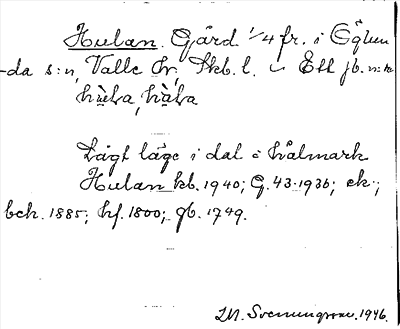 Hulan. Gård 1/4 fr. i Eglun-
-da s:n, Valle hr, Skb. l. Ett jb. n:r
hùla, hàla
Lågt läge i dal i hålmark
Hulan kb. 1940; G. 43. 1936; ek.;
bck. 1885; hf. 1800; gb. 1749.
1946.